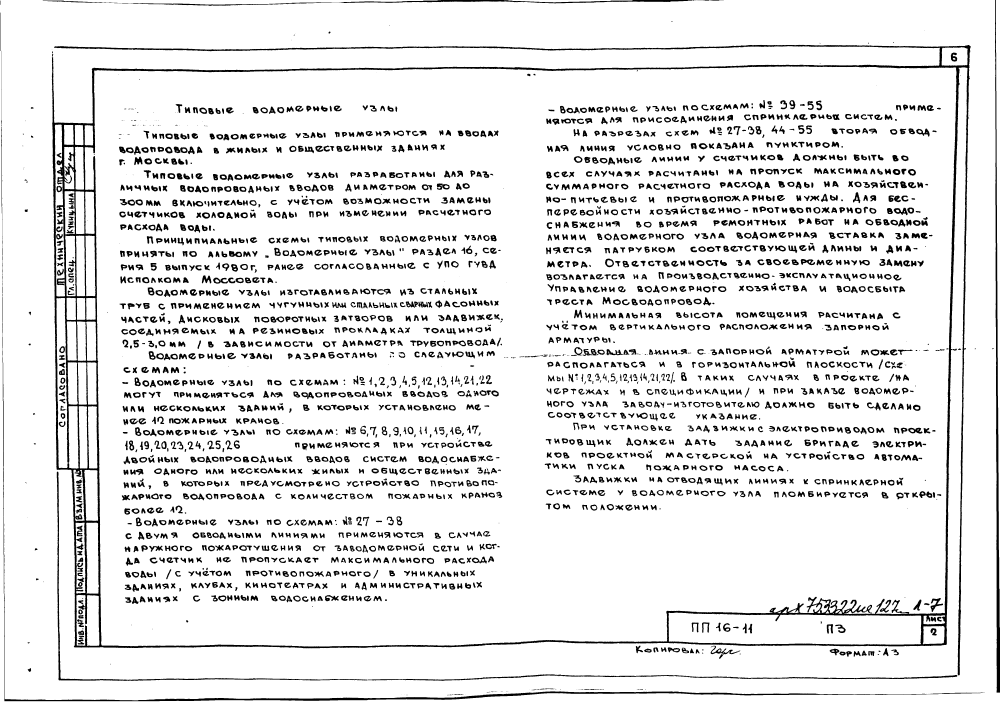 6
Типовые водомерные узлы
Типовые водомерные узлы применяются на вводах
водопровода в жилых и общественных зданиях
г. Москвы.
Типовые водомерные узлы разработаны для раз-
личных водопроводных вводов диаметром от 50 до
300мм включительно, с учётом возможности замены
счетчиков холодной воды при изменении расчетного
расхода воды.
Принципиальные схемы типовых водомерных узлов
приняты по альбому „Водомерные узлы" раздел 16, се-
рия 5 выпуск 1980г, ранее согласованные с УПО ГУВД
Исполкома Моссовета.
Водомерные узлы изготавливаются из стальных
труб с применением чугунных или стальных сварных фасонных
частей, дисковых поворотных затворов или задвижек,
соединяемых на резиновых прокладках толщиной
2,5-3,0 мм /в зависимости от диаметра трубопровода/.
Водомерные узлы разработаны по следующим
схемам:
- Водомерные узлы по схемам: №1,2,3,4,5,12,13,14,21,22
могут применяться для водопроводных вводов одного
или нескольких зданий, в которых установлено ме-
нее 12 пожарных кранов.
- Водомерные узлы по схемам: №6,7,8,9,10,11,15,16,17,
18,19,20,23,24,25,26 применяются при устройстве
двойных водопроводных вводов систем водоснабже-
ния одного или нескольких жилых и общественных зда-
ний, в которых предусмотрено устройство противопо-
жарного водопровода с количеством пожарных кранов
более 12.
- Водомерные узлы по схемам: №27 - 38
с двумя обводными линиями применяются в случае
наружного пожаротушения от заводомерной сети и ког-
да счетчик не пропускает максимального расхода
воды /с учётом противопожарного/ в уникальных
зданиях, клубах, кинотеатрах и административных
зданиях с зонным водоснабжением.
- Водомерные узлы по схемам: №39-55 приме-
няются для присоединения спринклерных систем.
На разрезах схем №27-38, 44-55 вторая обвод-
ная линия условно показана пунктиром.
Обводные линии у счетчиков должны быть во
всех случаях расчитаны на пропуск максимального
суммарного расчетного расхода воды на хозяйствен-
но-питьевые и противопожарные нужды. Для бес-
перебойности хозяйственно-противопожарного водо-
снабжения во время ремонтных работ на обводной
линии водомерного узла водомерная вставка заме-
няется патрубком соответствующей длины и диа-
метра. Ответственность за своевременную замену
возлагается на Производственно-эксплуатационное
Управление водомерного хозяйства и водосбыта
треста Мосводопровод.
Минимальная высота помещения расчитана с
учётом вертикального расположения запорной
арматуры.
Обводная линия с запорной арматурой может
располагаться и в горизонтальной плоскости /схе
мы №1,2,3,4,5,12,13,14,21,22/. В таких случаях в проекте /на
чертежах и в спецификации/ и при заказе водомер-
ного узла заводу-изготовителю должно быть сделано
соответствующее указание.
При установке задвижки с электроприводом проек-
тировщик должен дать задание бригаде электри-
ков проектной мастерской на устройство автома-
тики пуска пожарного насоса.
Задвижки на отводящих линиях к спринклерной
системе у водомерного узла пломбируется в откры-
том положении.
Согласовано
Технический отдел
Гл. спец.
Куницына
Взам.инв.№
Подпись и дата
Инв.№подл.
ПП 16-11 ПЗ
Лист
2
Копировал:
Формат: А3